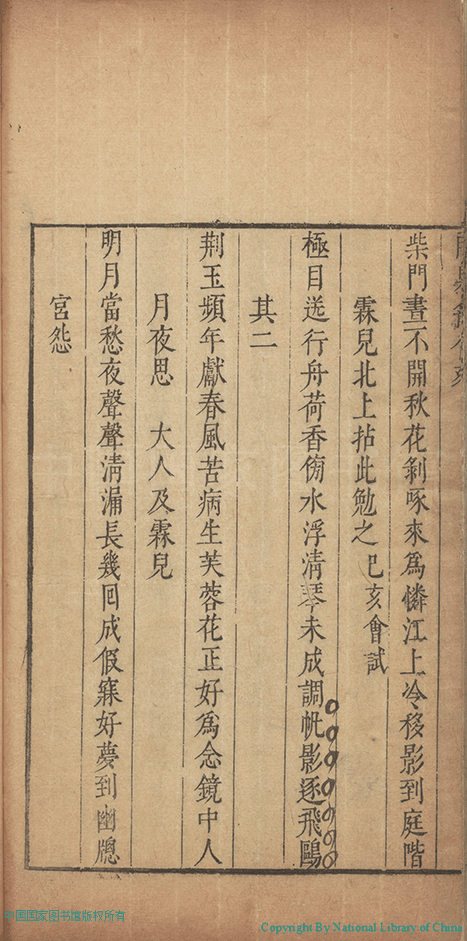 柴門晝不開秋花剝啄來爲憐江上冷移影到庭階
霖兒北上拈此勉之 已亥會試
極目送行舟荷香傍水浮清琴未成調帆影逐飛鷗
其二
荆玉頻年獻春風苦病生芙蓉花正好爲念鏡中人
月夜思 大人及霖兒
明月當愁夜聲聲清漏長幾回成假寐好夢到幽牕
宮怨
中國国家图书馆版权所有
Copyright By National Library of China